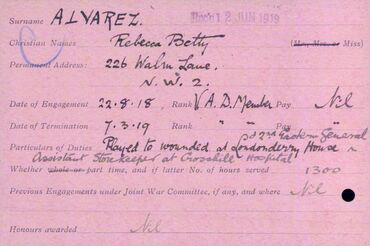 Surname ALVAREZ. Rec'd 12 JUN 1919
Christian Names Rebecca Betty (Mr., Mrs. or Miss)
Permanent Address: 226 Walm Lane.
N.W.2.
Date of Engagement 22.8.18. Rank V.A.D. Member Pay Nil
Date of Termination 7.3.19 Rank " " Pay "
Particulars of Duties Played to wounded at Londonderry House &
2nd Eastern General
Assistant Storekeeper at Hospital
Whether whole or part time, and if latter No. of hours served 1300
Previous Engagements under Joint War Committee, if any, and where Nil
Honours awarded Nil